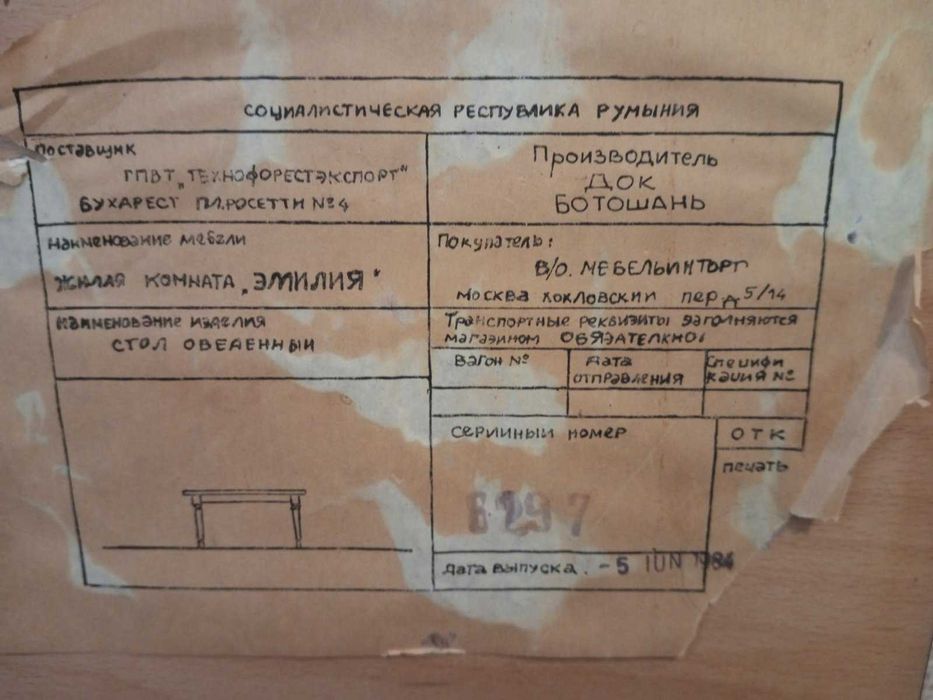 СОЦИАЛИСТИЧЕСКАЯ РЕСПУБЛИКА РУМЫНИЯ
Поставщик
ГПВТ „ТЕХНОФОРЕСТЭКСПОРТ"
БУХАРЕСТ ПЛ.РОСЕТТИ №4
Производитель
ДОК
БОТОШАНЬ
Наименование мебели
ЖИЛАЯ КОМНАТА „ЭМИЛИЯ"
Покупатель:
В/О. МЕБЕЛЬИНТОРГ
МОСКВА ХОКЛОВСКИЙ ПЕР Д 5/14
Наименование изделия
СТОЛ ОБЕДЕННЫЙ
Транспортные реквизиты заполняются
магазином ОБЯЗАТЕЛКНО!
Вагон №
Дата
отправления
Специфи
кация №
Серийный номер
ОТК
печать
6297
Дата выпуска. -5 IUN 1984